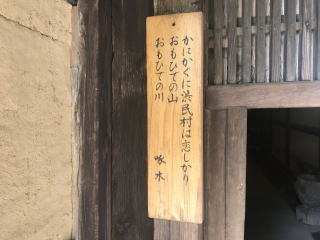 かにかくに渋民村は恋しかり
おもひでの山
おもひでの川
啄木